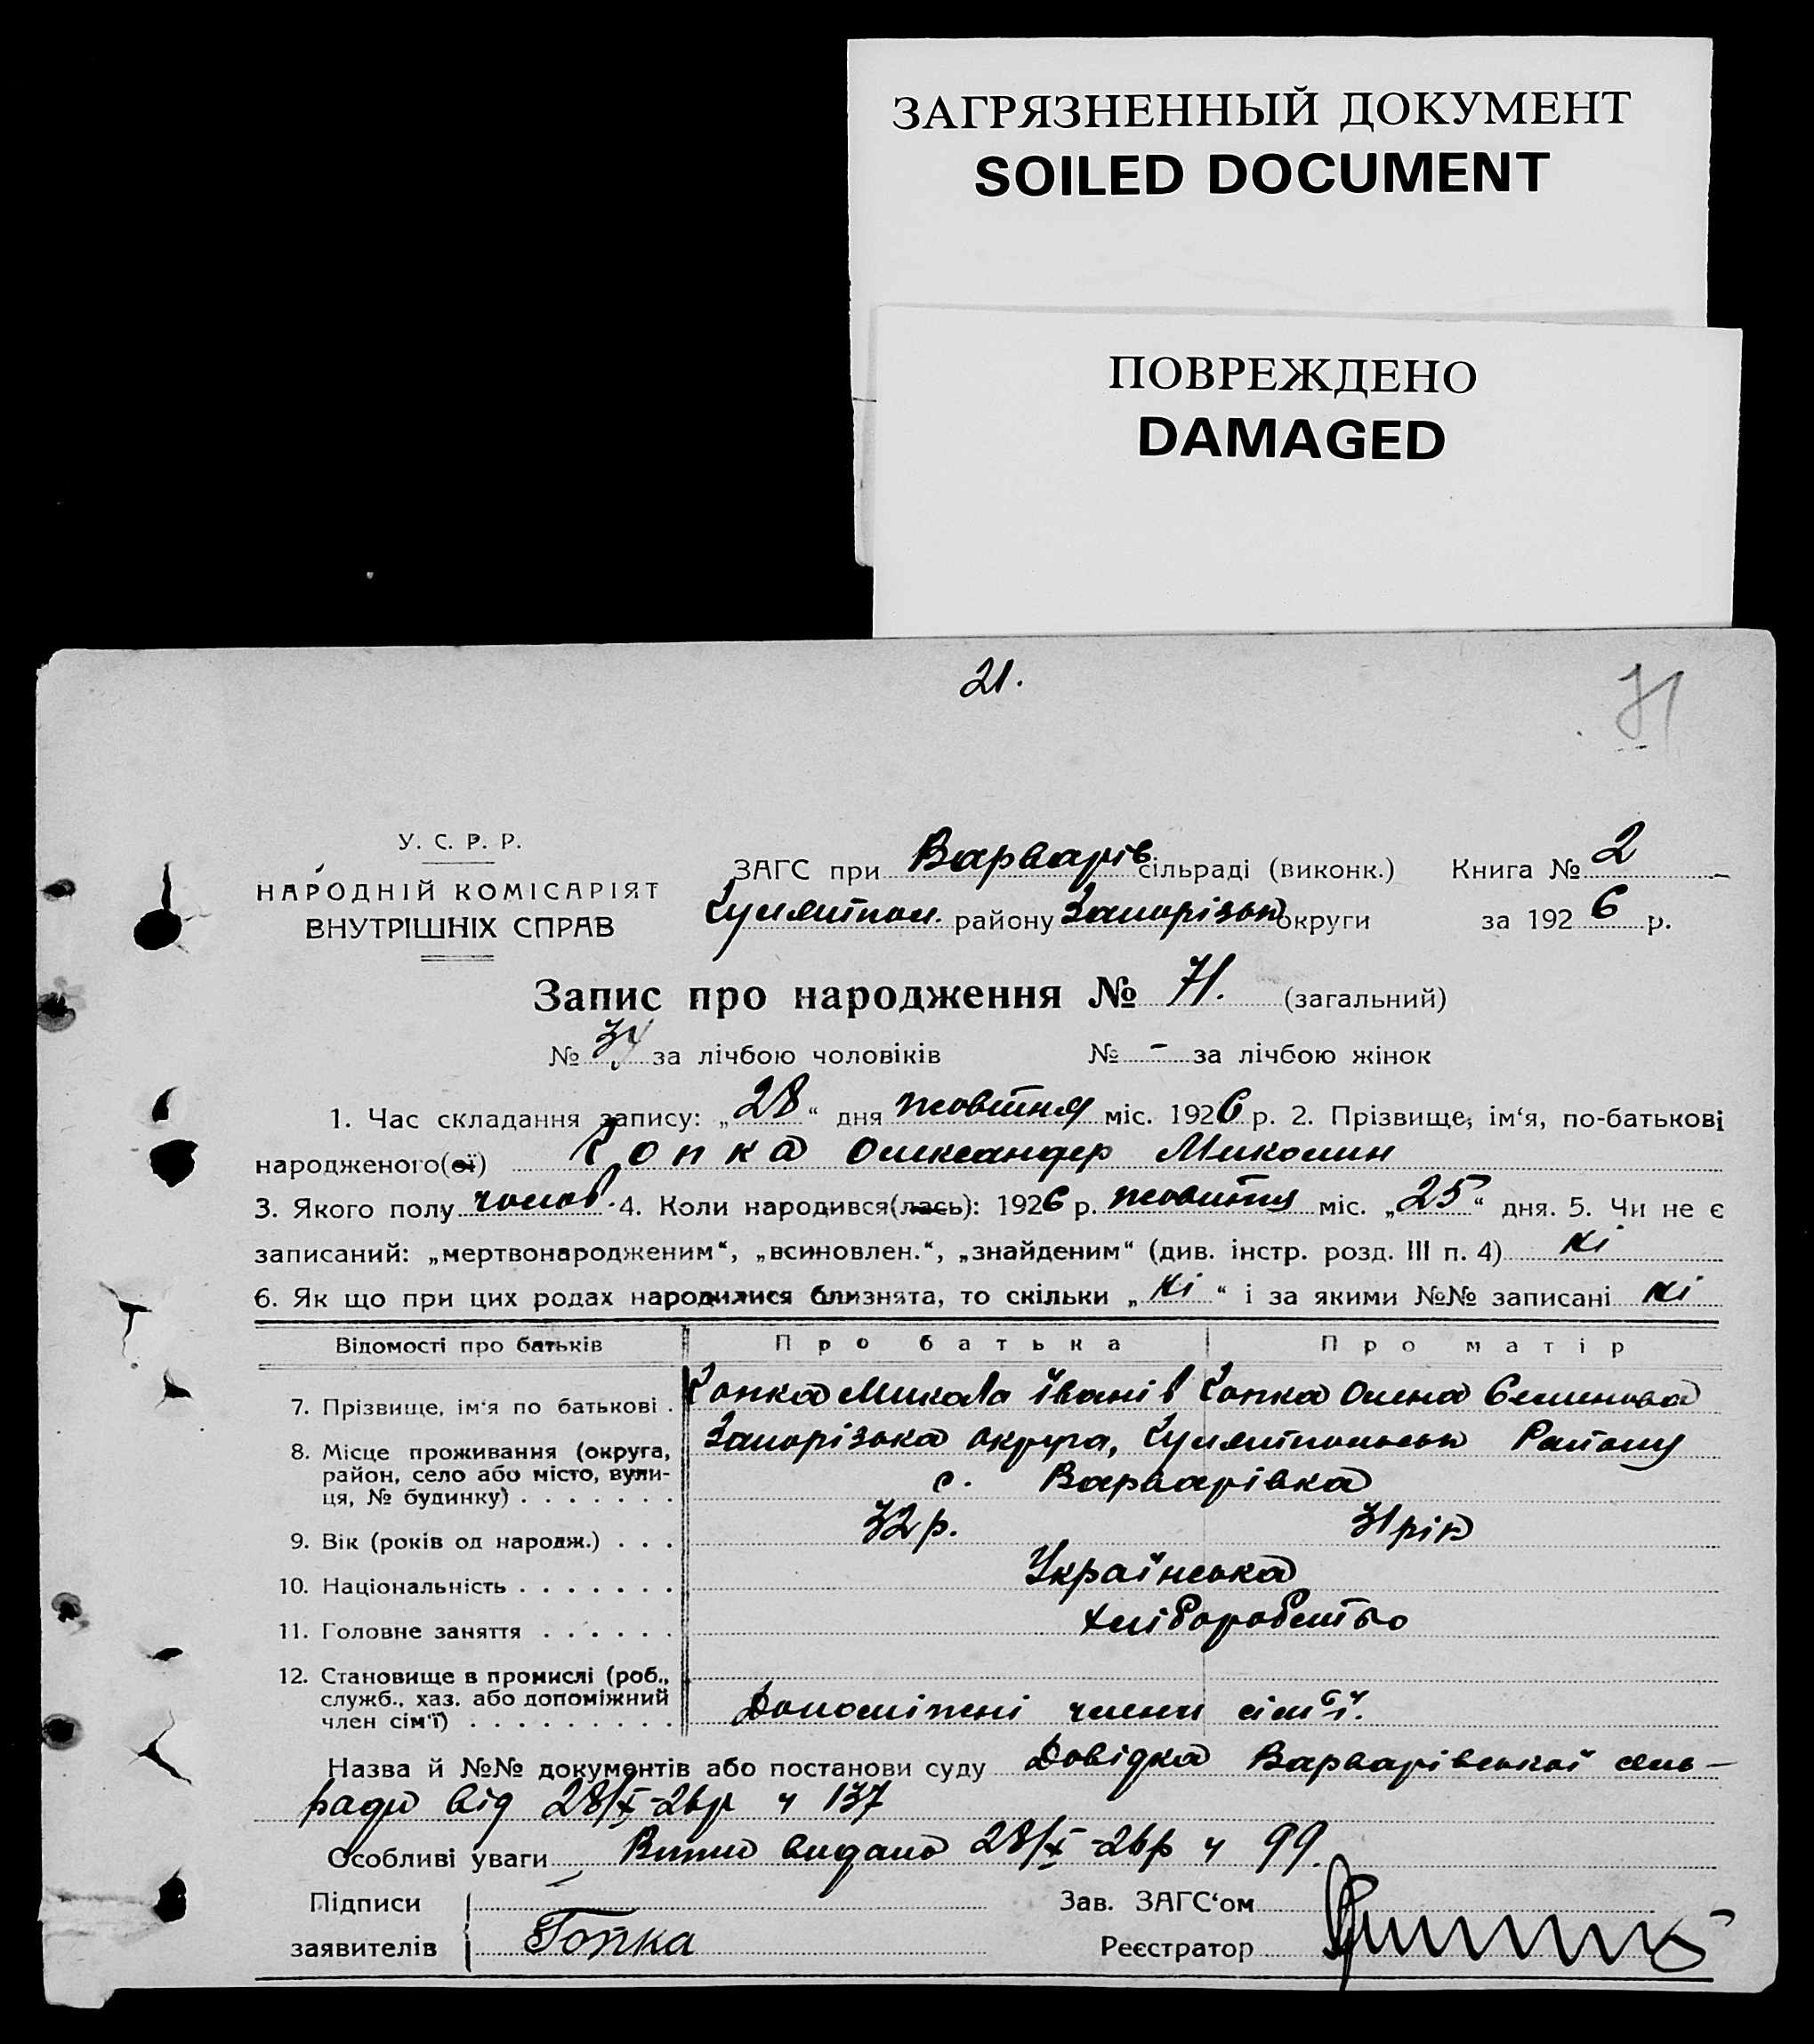 ЗАГРЯЗНЕННЫЙ ДОКУМЕНТ
SOILED DOCUMENT
ПОВРЕЖДЕНО
DAMAGED
21.
71
У. С. Р. Р.
НАРОДНІЙ КОМІСАРІЯТ
ВНУТРІШНІХ СПРАВ
ЗАГС при Варварів сільраді (виконк.) Книга № 2
Гуляйпол. району Запорізьк округи за 1926 р.
Запис про народження № 71. (загальний)
№ 34 за лічбою чоловіків № - за лічбою жінок
1. Час складання запису: „28“ дня жовтня міс. 1926 р. 2. Прізвище, ім‘я, по-батькові
народженого(ої) Гопка Олександер Миколин
3. Якого полу чолов. 4. Коли народився(лась): 1926 р. жовтня міс. „25“ дня. 5. Чи не є
записаний: „мертвонародженим“, „всиновлен.“, „знайденим“ (див. інстр. розд. III п. 4) ні
6. Як що при цих родах народилися близнята, то скільки „ні“ і за якими №№ записані ні
Відомості про батьків Про батька Про матір
7. Прізвище, ім‘я по батькові . Гопка Микола Іванів Гопка Олена Семенова
8. Місце проживання (округа, Запорізька округа, Гуляйпольськ Району
район, село або місто, вули- с. Варварівка
ця, № будинку) . . . . . . .
9. Вік (років од народж.) . . . 32 р. 31 рік
10. Національність . . . . . . . Українська
11. Головне заняття . . . . . . хліборобство
12. Становище в промислі (роб.,
служб., хаз. або допоміжний
член сім‘ї) . . . . . . . . . Допоміжні члени сім'ї.
Назва й №№ документів або постанови суду Довідка Варварівської сель-
ради від 28/X-26р ч 137
Особливі уваги Витяг видано 28/X-26р ч 99.
Підписи Зав. ЗАГС‘ом
заявителів Гопка Реєстратор